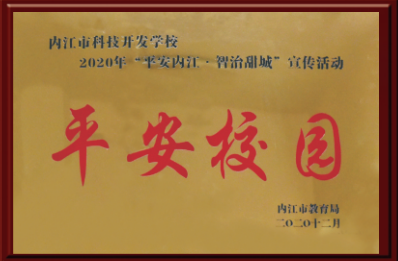 内江市科技开发学校
2020年“平安内江·智治甜城”宣传活动
平安校园
内江市教育局
二〇二〇十二月